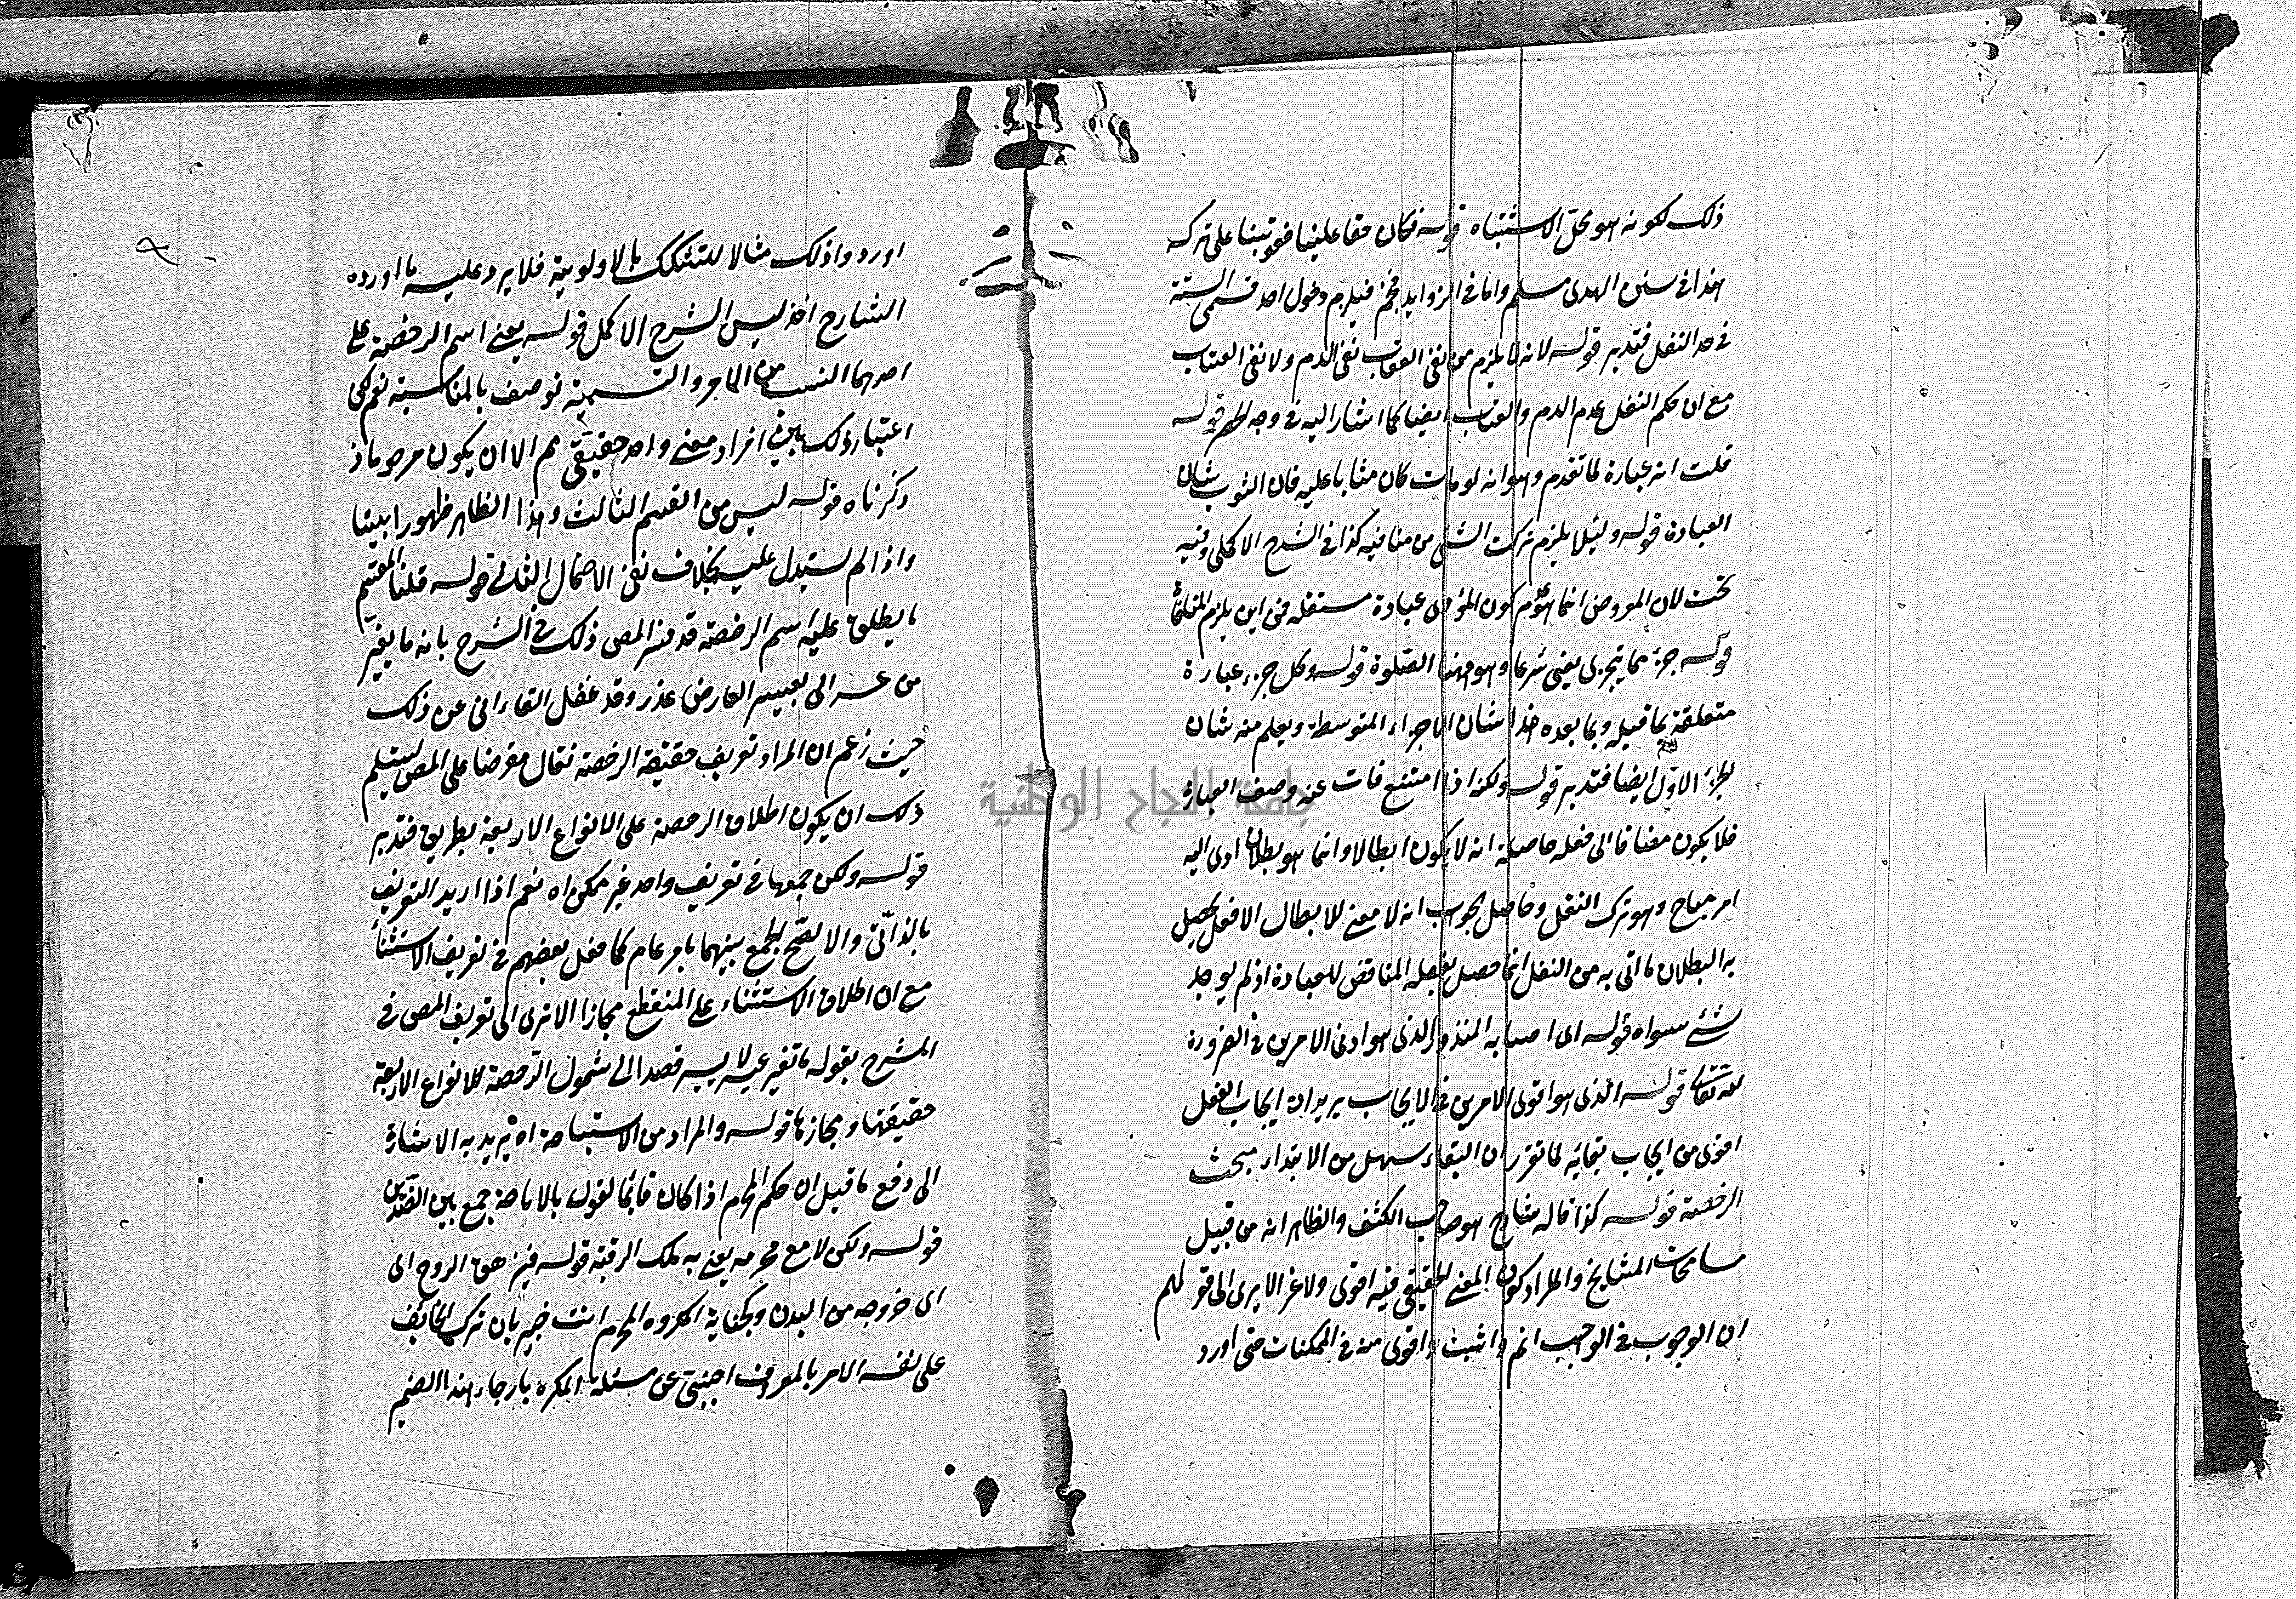 ذلك لكونه هو محل الاشتباه قوله فكان حقا علينا فعوتبنا على تركه
هذا في سنن الهدى مسلم واما في الزوايد فيلزم دخول احد قسمى السنة
في حد النفل فتدبر قوله لانه لا يلزم من نفى العقاب نفى الذم ولا نفى العتاب
مع ان حكم النفل عدم الذم والعتاب ايضا كما اشار اليه في وجه قوله
قلت انه عبارة لما تقدم وهو انه لو مات كان مثابا عليه فان الثوب شان
العبادة قوله ولئلا يلزم تركب الشئ من منافيه كذا في الشرح الاكملى وفيه
بحث لان المفروض انما هو عدم كون المؤدى عبادة مستقلة فمن اين يلزم المنافاة
قوله جزء مما يتجزى يعنى شرعا وهو ههنا الصلوة قوله وكل جزء عبارة
متعلقة بما قبله وبما بعده هذا شان الاجزاء المتوسطة ويعلم منه شان
الجزء الاول ايضا فتدبر قوله ولكنه اذا امتنع فات عنه وصف العبادة
فلا يكون مضافا الى فعله حاصله انه لا يكون ابطالا وانما هو بطلان ادى اليه
امر مباح وهو ترك النفل وحاصل الجواب انه لا معنى للابطال الا فعل يحصل
به البطلان ما اتى به من النفل انما حصل بفعله المناقض للعبادة اذ لم يوجد
شئ سواه قوله اى اصابه المنذور الذى هو ادنى الامرين في الضرورة
لله تعالى قوله الذى هو اقوى الامرين في الايجاب يريد ان ايجاب الفعل
اقوى من ايجاب بقائه لما تقرر ان البقاء سهل من الابتداء مبحث
الرخصة قوله كذا قاله شارح هو صاحب الكشف والظاهر انه من قبيل
مسامحات المشايخ والمراد كون المعنى الحقيقى فيه اقوى ولا غر الا يرى الى قولهم
ان الوجوب في الواجب اتم واثبت واقوى منه في الممكنات حتى اورد
اوردوا ذلك مثالا للتشكك بالاولوية فلا يرد عليه ما اورده
الشارح اخذ ليس الشرح الاكمل قوله يعنى اسم الرخصة على
احدهما انسب من الاخر والتسمية توصف بالمناسبة نعم لكن
اعتبار ذلك بين افراد معنى واحد حقيقى مم الا ان يكون مرجوعا ذ
وكرناه قوله ليس من القسم الثالث وهذا الظاهر ظهورا بينا
واذا لم يستدل عليه بخلاف نفى الاحتمال الثانى قوله قلنا المقسم
ما يطلق عليه اسم الرخصة قد فسر المص ذلك في الشرح بانه ما يغير
من عسر الى يسر لعارض عذر وقد غفل القاءانى عن ذلك
حيث زعم ان المراد تعريف حقيقة الرخصة فقال معترضا على المص يستلزم
ذلك ان يكون اطلاق الرخصة على الانواع الاربعة بطريق فتدبر
قوله ولكن جمعها في تعريف واحد غير ممكن اه نعم اذا اريد التعريف
بالذاتى والا لصح الجمع بينهما بامر عام كما فعل بعضهم في تعريف الاستثناء
مع ان اطلاق الاستثناء على المنقطع مجازا الا ترى الى تعريف المص في
الشرح بقوله ما تغير عسر الى يسر قصدا الى شمول الرخصة للانواع الاربعة
حقيقتها ومجازها قوله والمراد من الاستباحة اه يريد به الاشارة
الى دفع ما قيل ان حكم المحرم اذا كان قائما لقول بالاباحة جمع بين الضدين
قوله ولكن لا مع محرمه يعنى به ملك الرقبة قوله فيزهق الروح اى
اى خروجه من البدن وبجناية المكره المحرم انت خبير بان ترك الخائف
على نفسه الامر بالمعروف اجنبى عن مسئلة المكره بارجاء هذا الضمير
جامعة النجاح الوطنية